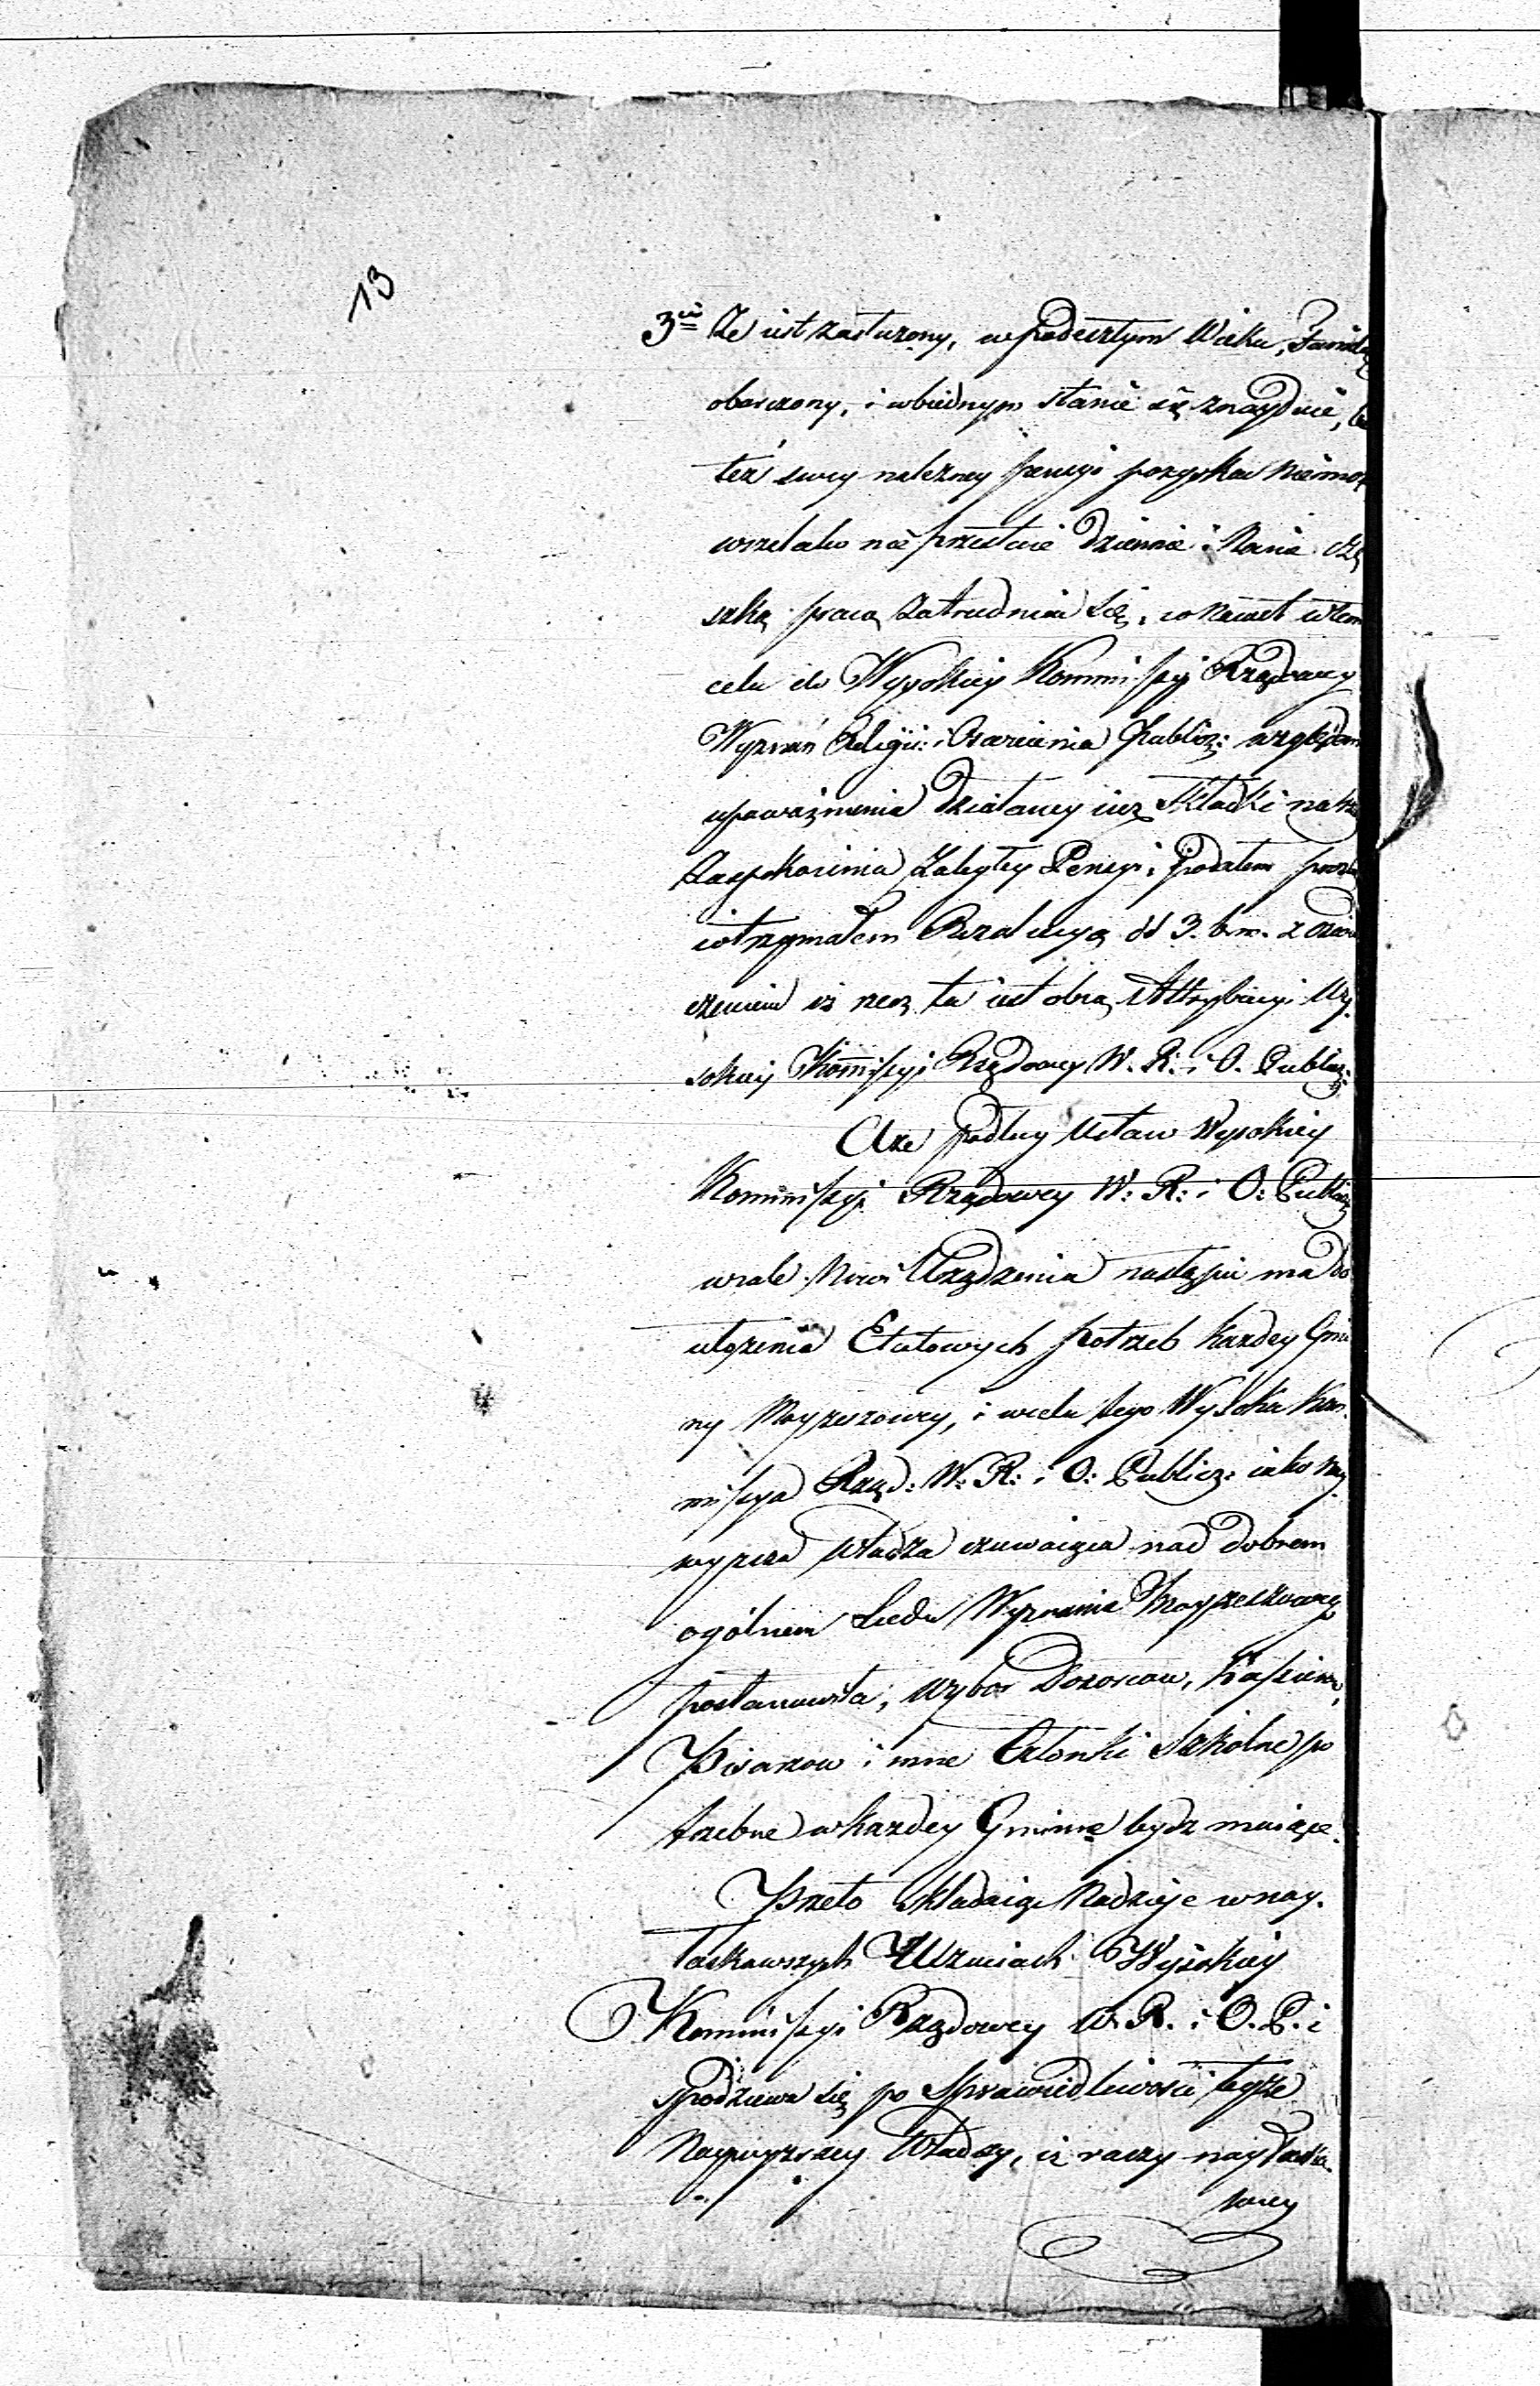 13
3cie Ze iest zasłużony, w podeszłym Wieku, Familią
obarczony, i w biednym stanie się znayduie,
też swey należney pensyi pozyskać niemoż
wszelako nie przestaie dziennie i Nocnie
szką pracą zatrudniać się, co nawet w tem
celu do Wysokiey Kommissyi Rządowey
Wyznań Religii: i Oświecenia Publicz: względem
upoważnienia działaney iuż Składki na
Zaspokoienia Zaległey Pensyi, podałem
i otrzymałem Rezolucyą dd 3. b. m. z
czeniem iż rzecz ta iest obcą Attrybucyi Wy-
sokiey Kommissyi Rządowey W. R. i O. Publicz:
A że podług Ustaw Wysokiey
Kommissyi Rządowey W: R: i O: Publicz
wcale Nowe Urządzenia nastąpić ma do
ułożenia Etatowych potrzeb każdey Gmi
ny Moyżeszowey, i w celu tego Wysoka Kom-
missya Rząd: W: R: i O: Publicz: iako Nay-
wyższa Władza czuwaiąca nad dobrem
ogólnem Ludu Wyznania Moyżeszowego
postanowiła, wybór Dozorców, Kassiera,
Pisarzow i inne Członki Szkolne po
trzebne w każdey Gminie bydź maiące.
Przeto składaiąc Nadzieje w nay-
łaskawszych Względach Wysokiey
Kommissyi Rządowey W. R. i O. P. i
spodziewa się po Sprawiedliwości teyże
Naywyższey Władzy, iż raczy nayłaska-
wiey